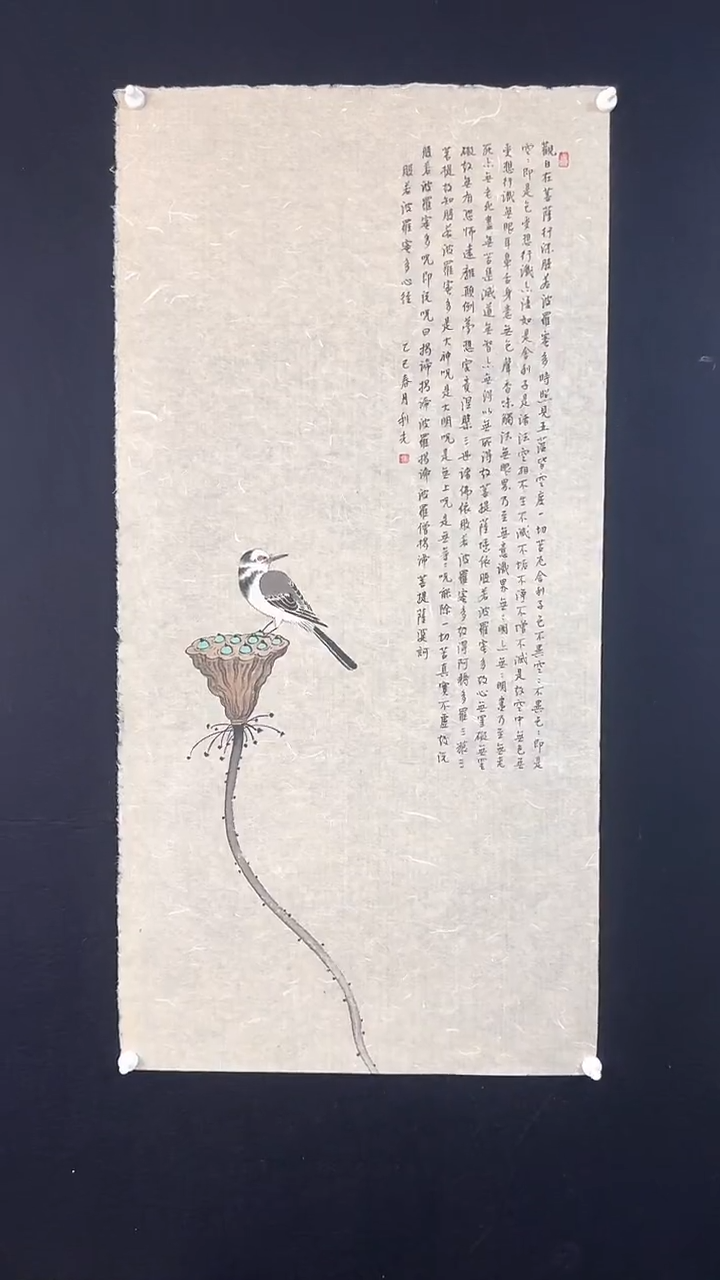 觀自在菩薩行深般若波羅蜜多時照見五蘊皆空度一切苦厄舍利子色不異空〻不異色〻即是
空〻即是色受想行識亦復如是舍利子是諸法空相不生不滅不垢不淨不增不減是故空中無色無
受想行識無眼耳鼻舌身意無色聲香味觸法無眼界乃至無意識界無〻明亦無〻明盡乃至無老
死亦無老死盡無苦集滅道無智亦無得以無所得故菩提薩埵依般若波羅蜜多故心無罣礙無罣
礙故無有恐怖遠離顛倒夢想究竟涅槃三世諸佛依般若波羅蜜多故得阿耨多羅三藐三
菩提故知般若波羅蜜多是大神呪是大明呪是無上呪是無等〻呪能除一切苦真實不虛故說
般若波羅蜜多呪即說呪曰揭諦揭諦波羅揭諦波羅僧揭諦菩提薩婆訶
般若波羅蜜多心經 乙巳春月利